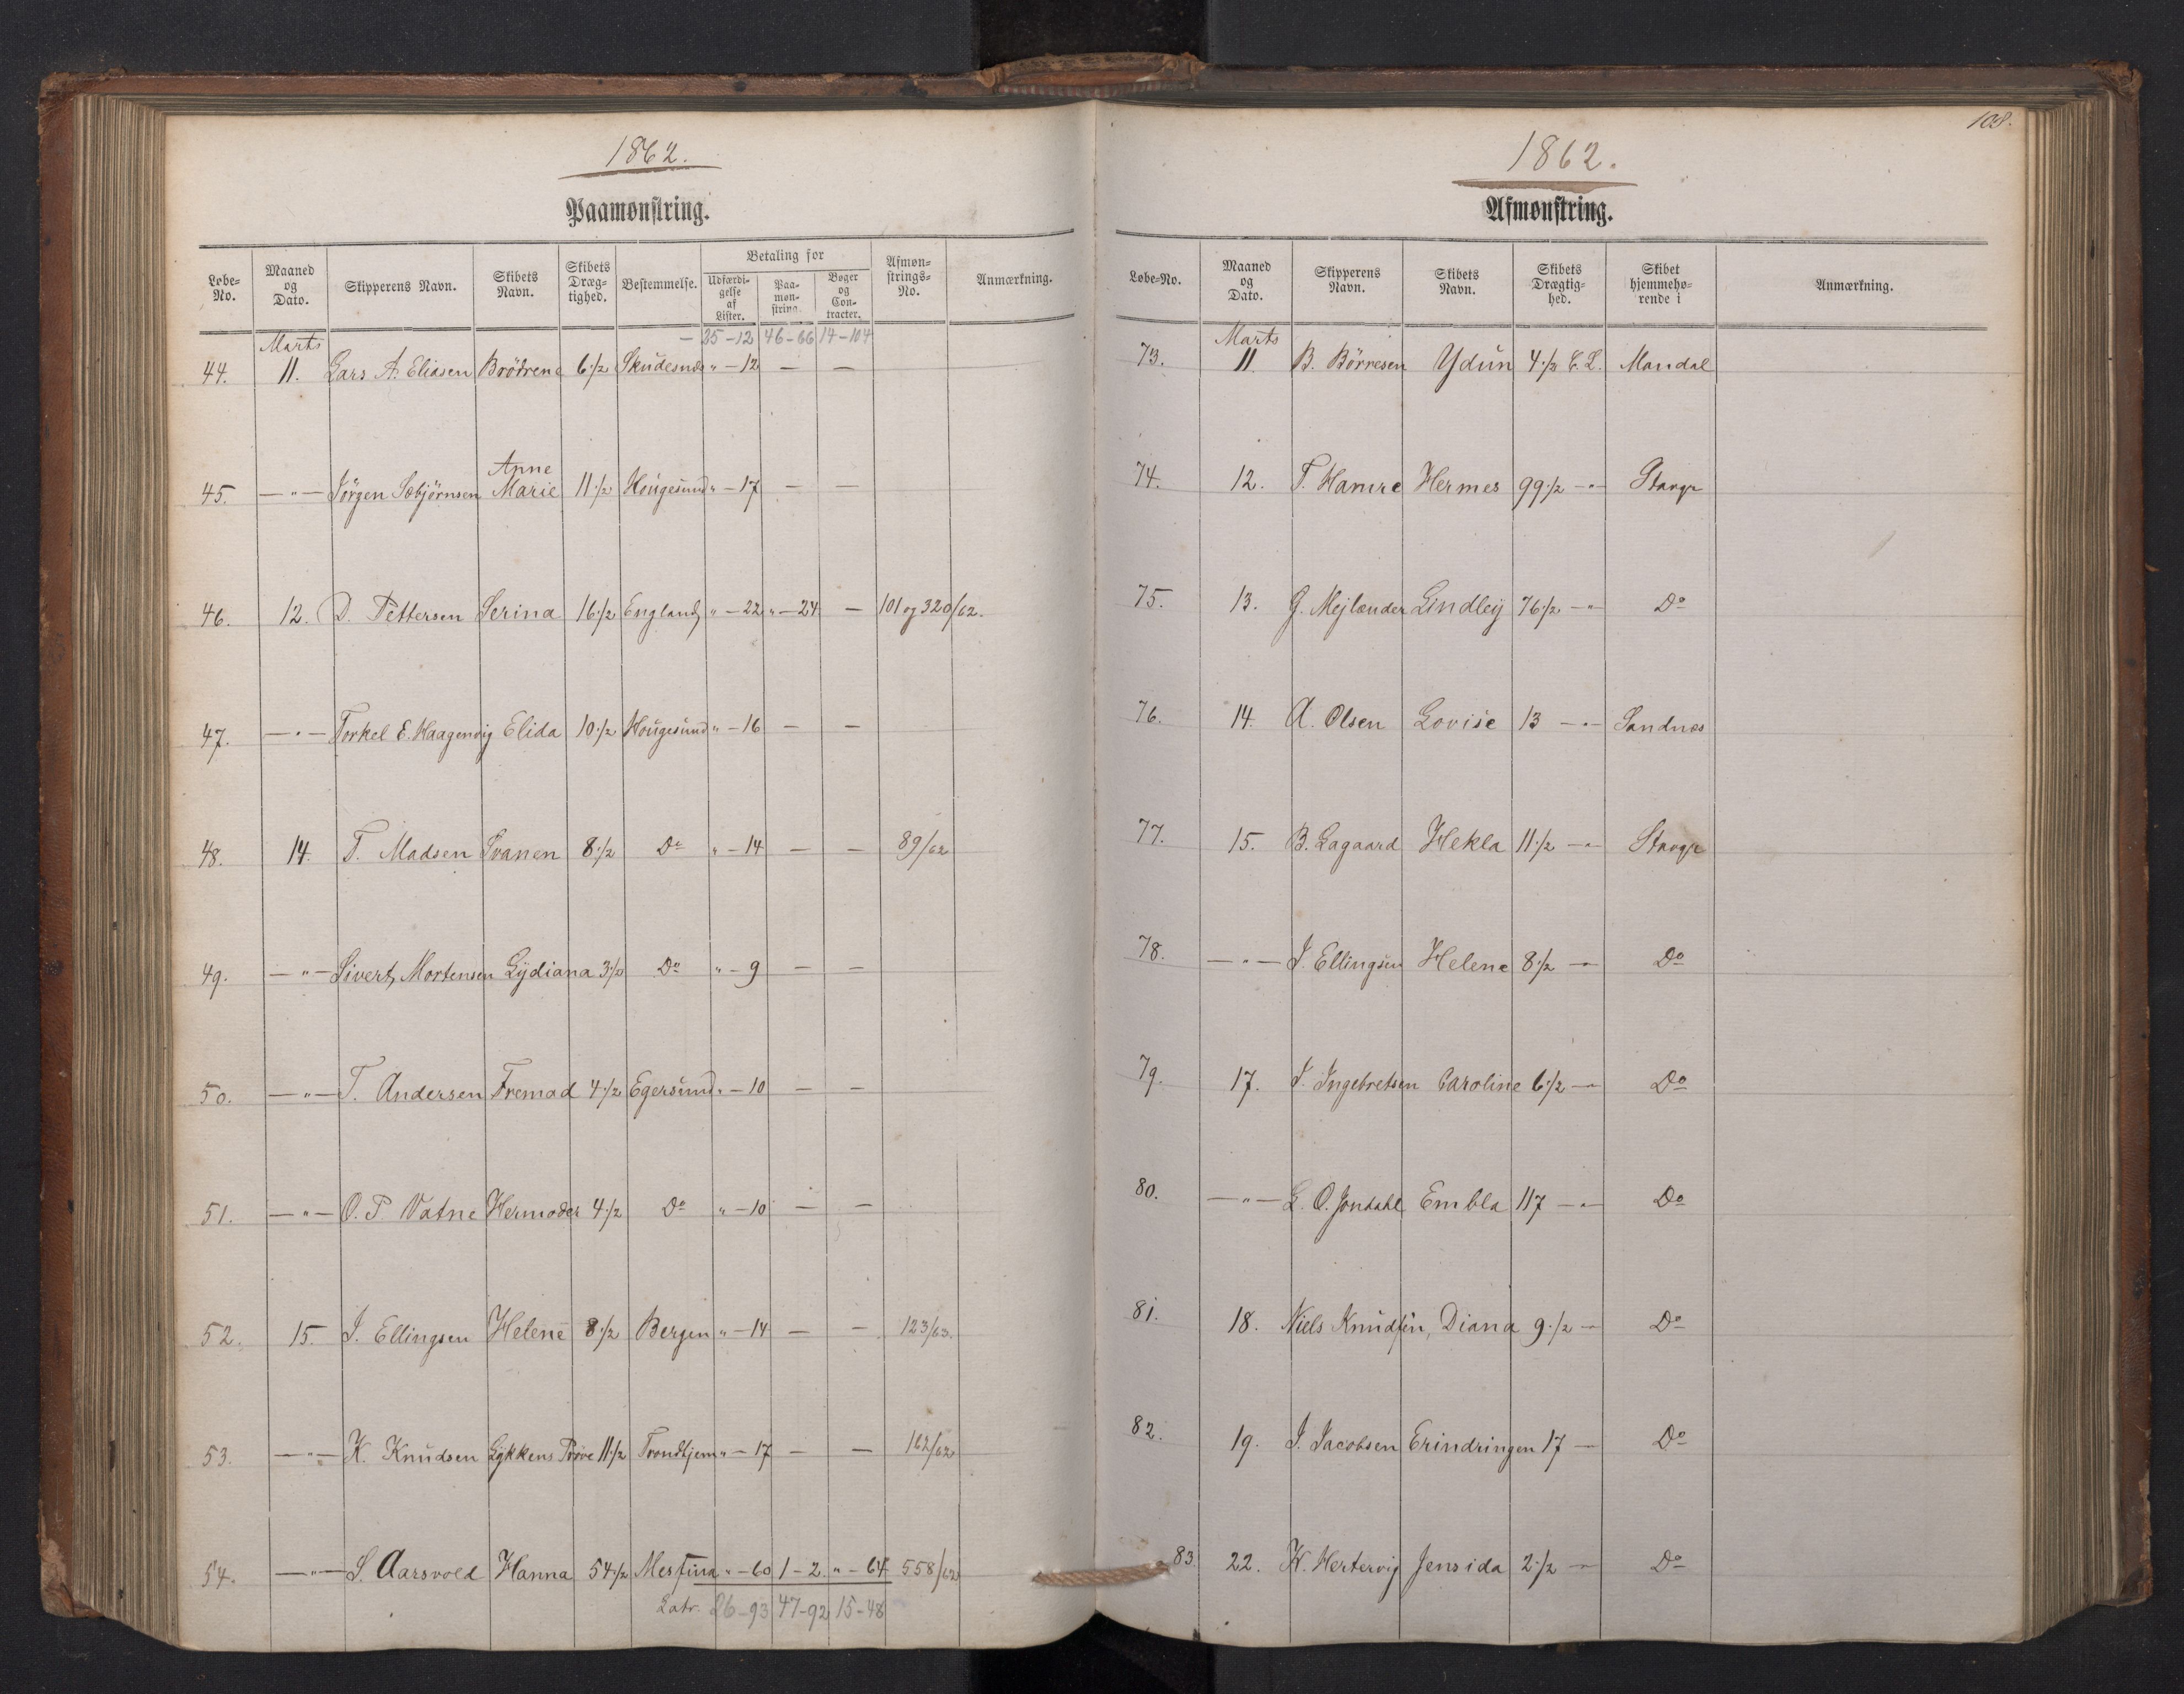 1862.
Paamønstring.
Løbe-No. | Maaned og Dato. | Skipperens Navn. | Skibets Navn. | Skibets Dræg-tighed. | Bestemmelse. | Betaling for: Udfærdi-gelse af Lister. | Paa-møn-string. | Bøger og Con-tracter. | Afmøn-strings-No. | Anmærkning.
— 25-12 | 46-66 | 14-104
Marts
44. | 11. | Lars A. Eliasen | Brödrene | 6 1/2 | Skudesnæs | " - 12 | — | —
45. | — " — | Jörgen Sæbjörnsen | Anne Marie | 11 1/2 | Hougesund | " - 17 | — | —
46. | 12. | D. Pettersen | Serina | 16 1/2 | England | " - 22 | " - 24 | — | 101 og 320/62.
47. | — " — | Torkel E. Haagenvig | Elida | 10 1/2 | Hougesund | " - 16 | — | —
48. | 14. | T. Madsen | Svanen | 8 1/2 | Do | " - 14 | — | — | 89/62
49. | — " — | Sivert Mortensen | Lydiana | 3 1/2 | Do | " - 9 | — | —
50. | — " — | T. Andersen | Fremad | 4 1/2 | Egersund | " - 10 | — | —
51. | — " — | O. P. Vatne | Hermoder | 4 1/2 | Do | " - 10 | — | —
52. | 15. | J. Ellingsen | Helene | 8 1/2 | Bergen | " - 14 | — | — | 123/63.
53. | — " — | K. Knudsen | Lykkens Pröve | 11 1/2 | Trondhjem | " - 17 | — | — | 162/62
54. | — " — | S. Aarsvold | Hanna | 54 1/2 | Messina | " - 60 | 1 - 2 | " - 64 | 558/62
Latr. 26-93 | 47-92 | 15-48
108.
1862.
Afmønstring.
Løbe-No. | Maaned og Dato. | Skipperens Navn. | Skibets Navn. | Skibets Drægtig-hed. | Skibet hjemmehø-rende i | Anmærkning.
Marts
73. | 11 | B. Börresen | Ydun | 4 1/2 C. L. | Mandal
74. | 12. | T. Hamre | Hermes | 99 1/2 — " — | Stavgr
75. | 13. | G. Mejlænder | Lindley | 76 1/2 — " — | Do
76. | 14. | A. Olsen | Lovise | 13 — " — | Sandnæs
77. | 15. | B. Lagaard | Hekla | 11 1/2 — " — | Stavgr
78. | — " — | J. Ellingsen | Helene | 8 1/2 — " — | Do
79. | 17. | J. Ingebretsen | Caroline | 6 1/2 — " — | Do
80. | — " — | L. O. Jondahl | Embla | 117 — " — | Do
81. | 18. | Niels Knudsen, | Diana | 9 1/2 — " — | Do
82. | 19. | J. Jacobsen | Erindringen | 17 — | Do
83 | 22. | K. Hertervig | Jensida | 2 1/2 — " — | Do